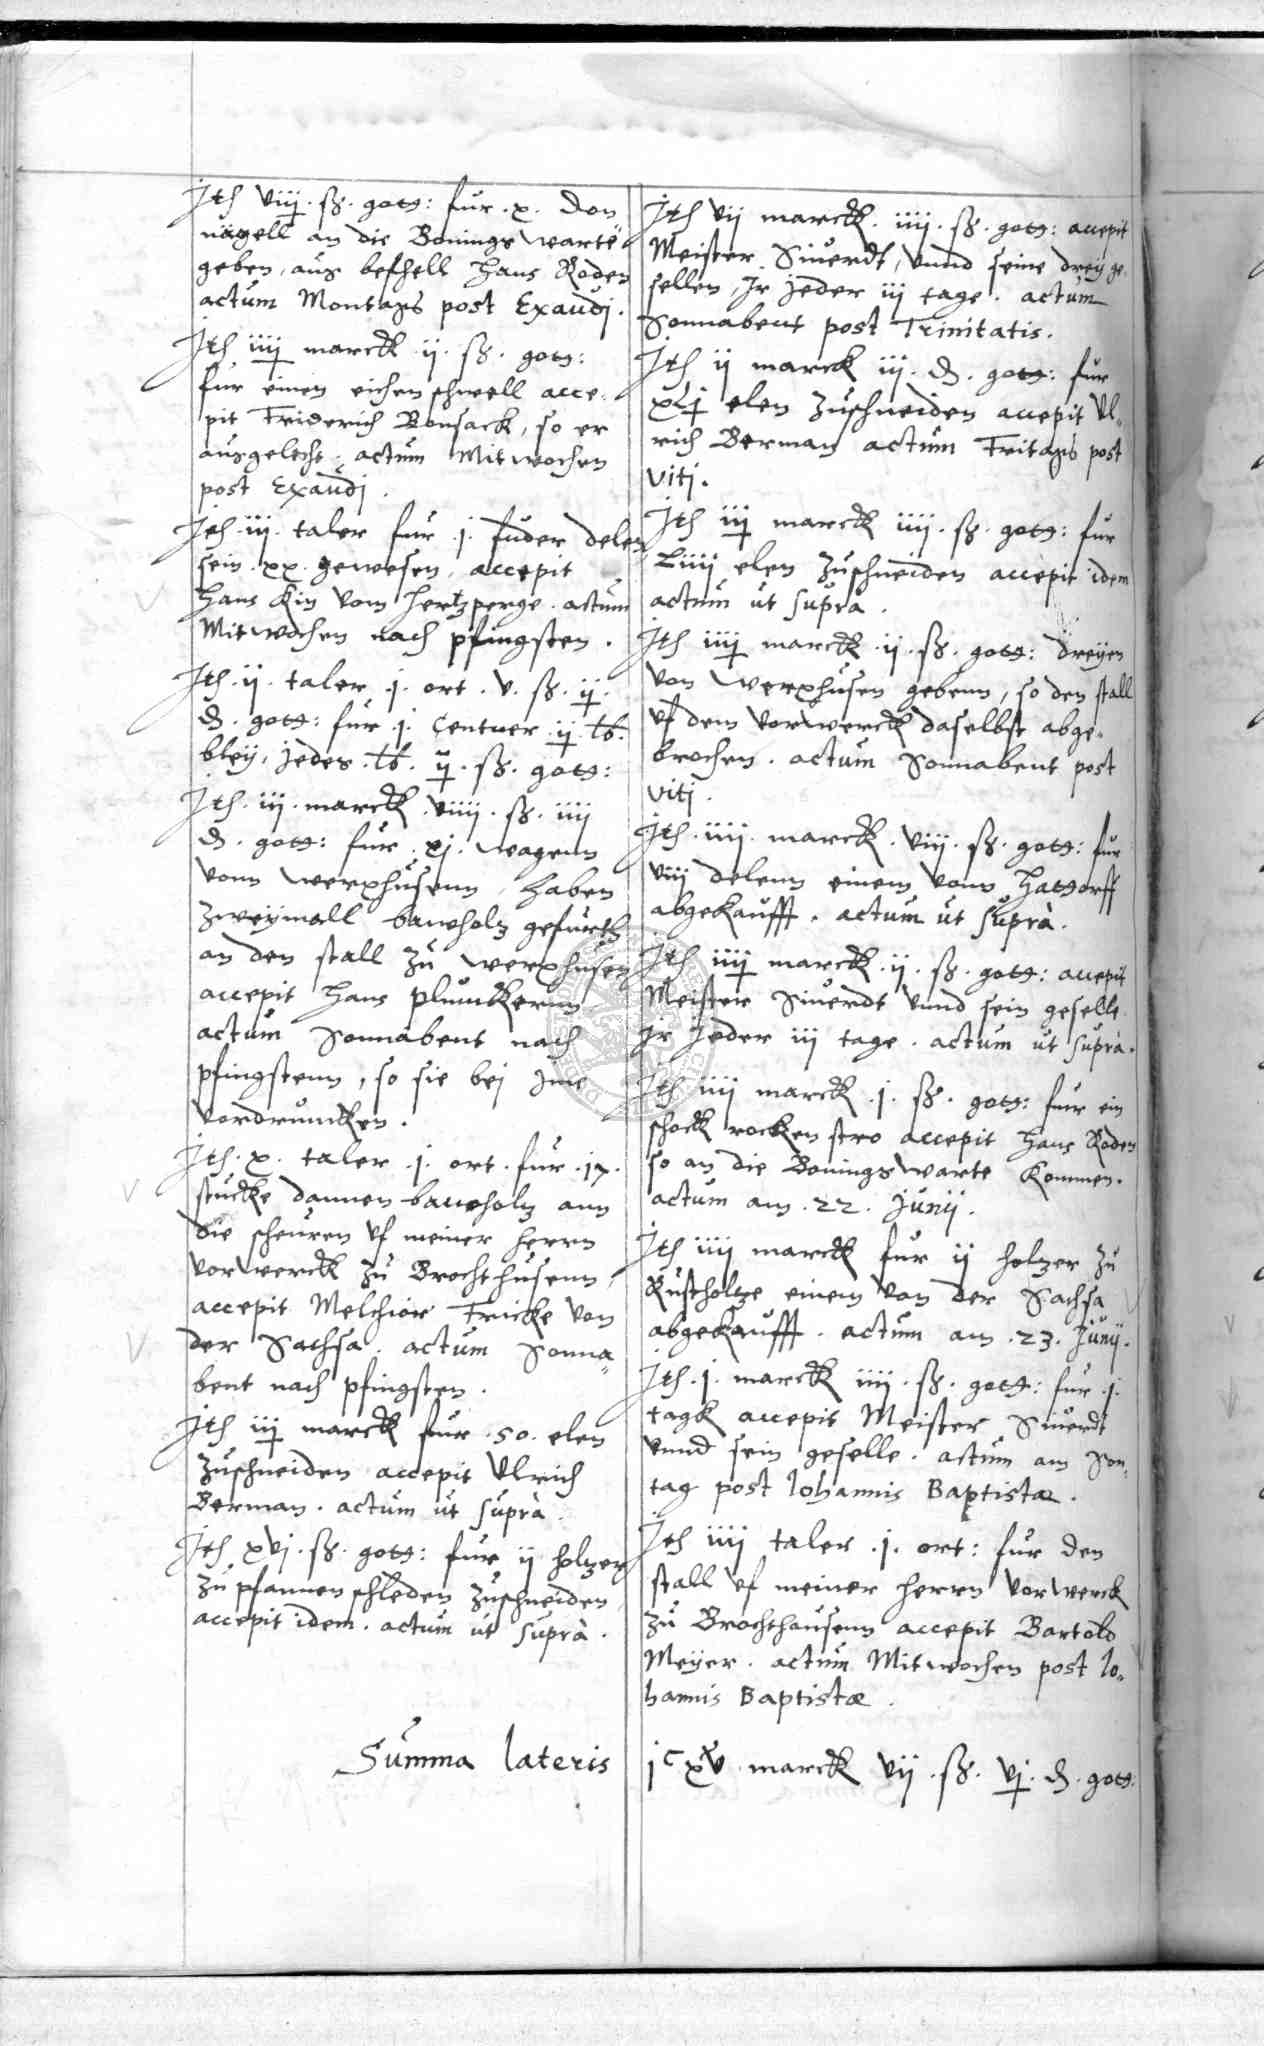 Ith viij . ß . gotg: fur . x . don
nagell an die Bonings warte
geben, aus befhell Hans Roden
actum Montags post Exaudi .
Ith iiij marck ij . ß . gotg:
fur einen eichen schwell acce,
pit Friderich Bonsack, so er
ausgelecht . actum Mitwochen
post Exaudi .
Ith . iij . taler fur . j . fuder delen
sein . xx . gewesen, accepit
Hans Kin vom Hertzperge . actum
Mitwochen nach pfingsten .
Ith . ij . taler . j . ort . v . ß . ij .
₰ . gotg: fur . j . Centner . ij . lb .
bley, jedes . lb . ij . ß . gotg:
Ith . iij . marck . viiij . ß . iiij
₰ . gotg: fur . xj . wagenn
vonn werxhusenn, haben
zweymall bauholz gefurth
an den stall zu werxhusen
accepit Hans plunckernn
actum Sonnabent nach
pfingstenn, so sie bei Ime
vordruncken .
Ith . x . taler . j . ort . fur . 17 .
stucke dannen bauholz ann
die scheuren uf meiner herrn
vorwerck zu Brochthusenn,
accepit Melchior Fricke von
der Sachsa . actum Sonna„
bent nach pfingsten .
Ith iij marck fur . 50 . elen
zuschneiden accepit Ulrich
Berman . actum ut suprà .
Ith xvj . ß . gotg: fur ij holzer
zu pfannen schleden zuschneiden
accepit idem . actum ut suprà .
Ith vij marck . iiij . ß . gotg: accepit
Meister Siuerdt, unnd seine drey ge,
sellen, Ir jeder iij tage . actum
Sonnabent post Trinitatis .
Ith ij marck iij . ₰ . gotg: fur
xLj elen zuschneiden accepit Ul„
rich Berman actum Fritags post
Viti .
Ith iij marck iiij . ß . gotg: fur
Liiij elen zuschneiden accepit idem
actum ut suprà .
Ith iiij marck . ij . ß . gotg: dreyen
von werxhusen gebenn, so den stall
uf dem vorwerck daselbst abge„
brochen . actum Sonnabent post
Viti .
Ith . iiij . marck . viij . ß . gotg: fur
viij delenn einem vonn Hatdorff
abgekaufft . actum ut suprà .
Ith iiij marck . ij . ß . gotg: accepit
Meister Siuerdt unnd sein geselle
Ir Jeder iij tage . actum ut suprà .
Ith iiij marck . j . ß . gotg: fur ein
schock rocken stro accepit Hans Roden
so an die Bonings warte kommen .
actum am . 22 . Junij .
Ith iiij marck fur ij holzer zu
Rustholtze einem von der Sachsa
abgekaufft . actum am . 23 . Junij .
Ith . j . marck iiij . ß . gotg: fur . j .
tagk accepit Meister Siuerdt
unnd sein geselle . actum am Son„
tag post Iohannis Baptistae .
Ith iiij taler . j . ort : fur den
stall uf meiner herrn vorwerck
zu Brochthausenn accepit Bartold
Meyer . actum Mitwochen post Io„
hannis Baptistae .
Summa lateris
jc xv marck vij . ß . vj . ₰ . gotg: